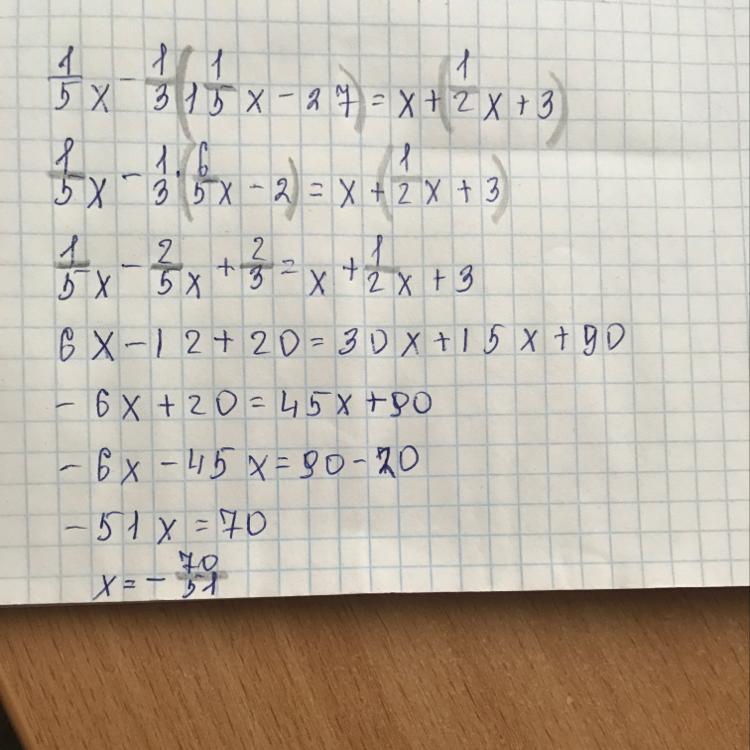 1/5 x - 1/3 (1 1/5 x - 27) = x + (1/2 x + 3)
1/5 x - 1/3 · (6/5 x - 2) = x + (1/2 x + 3)
1/5 x - 2/5 x + 2/3 = x + 1/2 x + 3
6x - 12 + 20 = 30x + 15x + 90
- 6x + 20 = 45x + 90
- 6x - 45x = 90 - 20
- 51x = 70
x = - 70/51